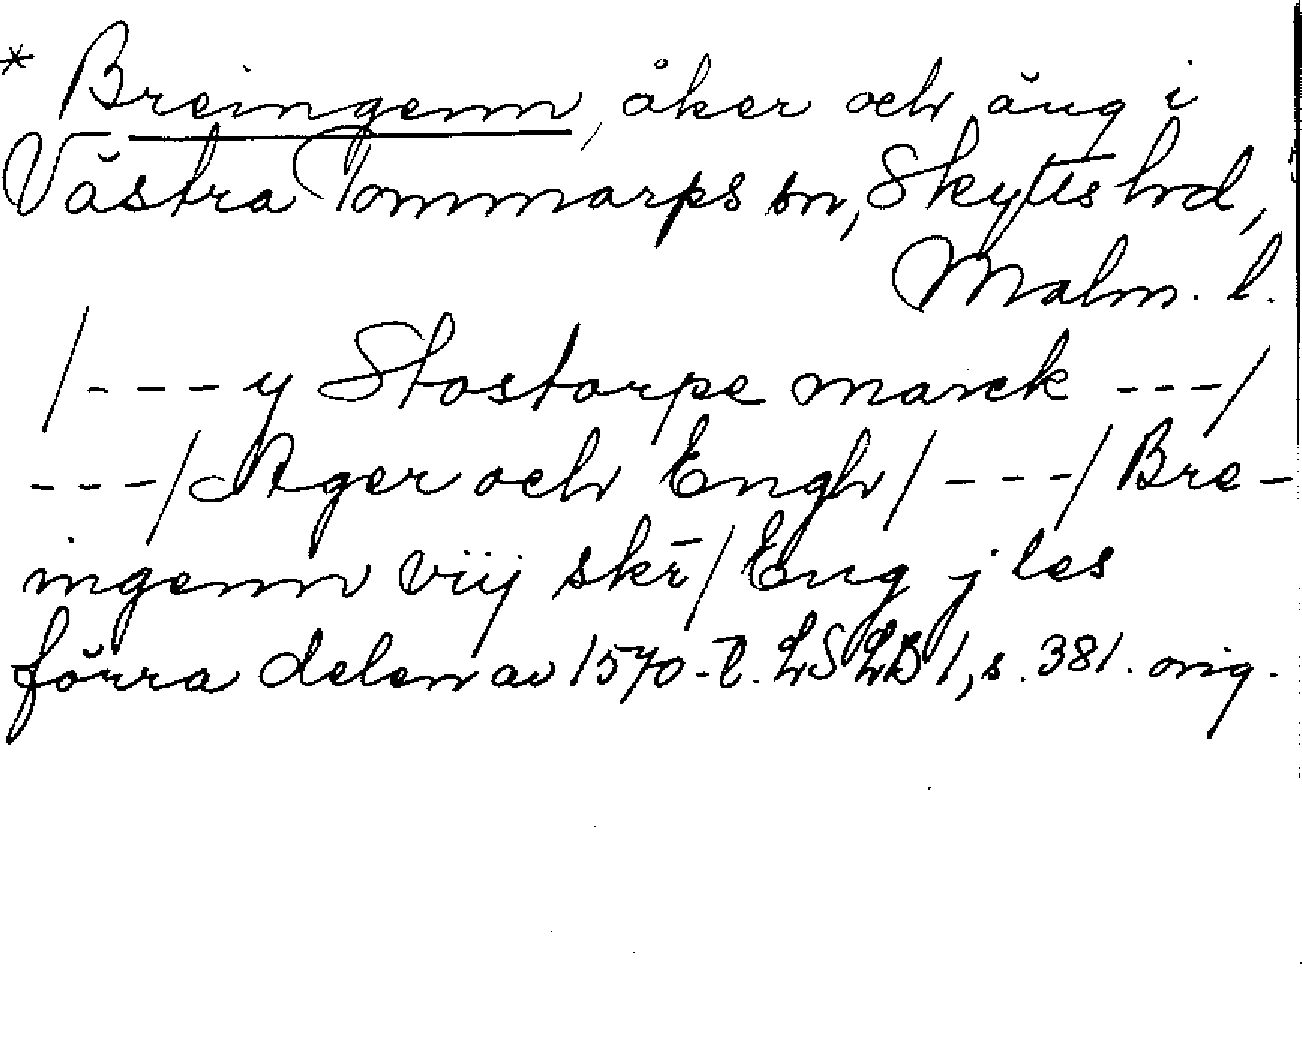 * Breingenn, åker och äng i
Västra Tommarps sn, Skytts hd,
Malm. l.
/---y Stostorpe marck ---/
---/ Ager och Engh /---/ Bre-
ingenn viij skr̄ / Eng j les
förra delen av 1570-t. LSLB 1, s. 381. orig.